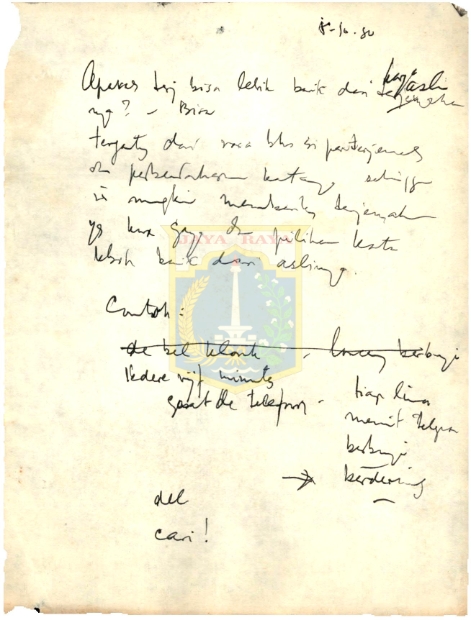 8-10-80
Apakah terj bisa lebih baik dari karya asli
nya? - Bisa
tergantung dari rasa bhs si penterjemah
dan perbendaharaan katanya, sehingga
ia mungkin memberikan terjemahan
yg kua gaya dan pilihan kata
lebih baik dari aslinya.
JAYA RAYA
Contoh:
de bel klonk - lonceng berbunyi
Iedere vijf minuten - tiap lima
gaat de telefoon - menit telepon
berbunyi
→ berdering
del
cari!